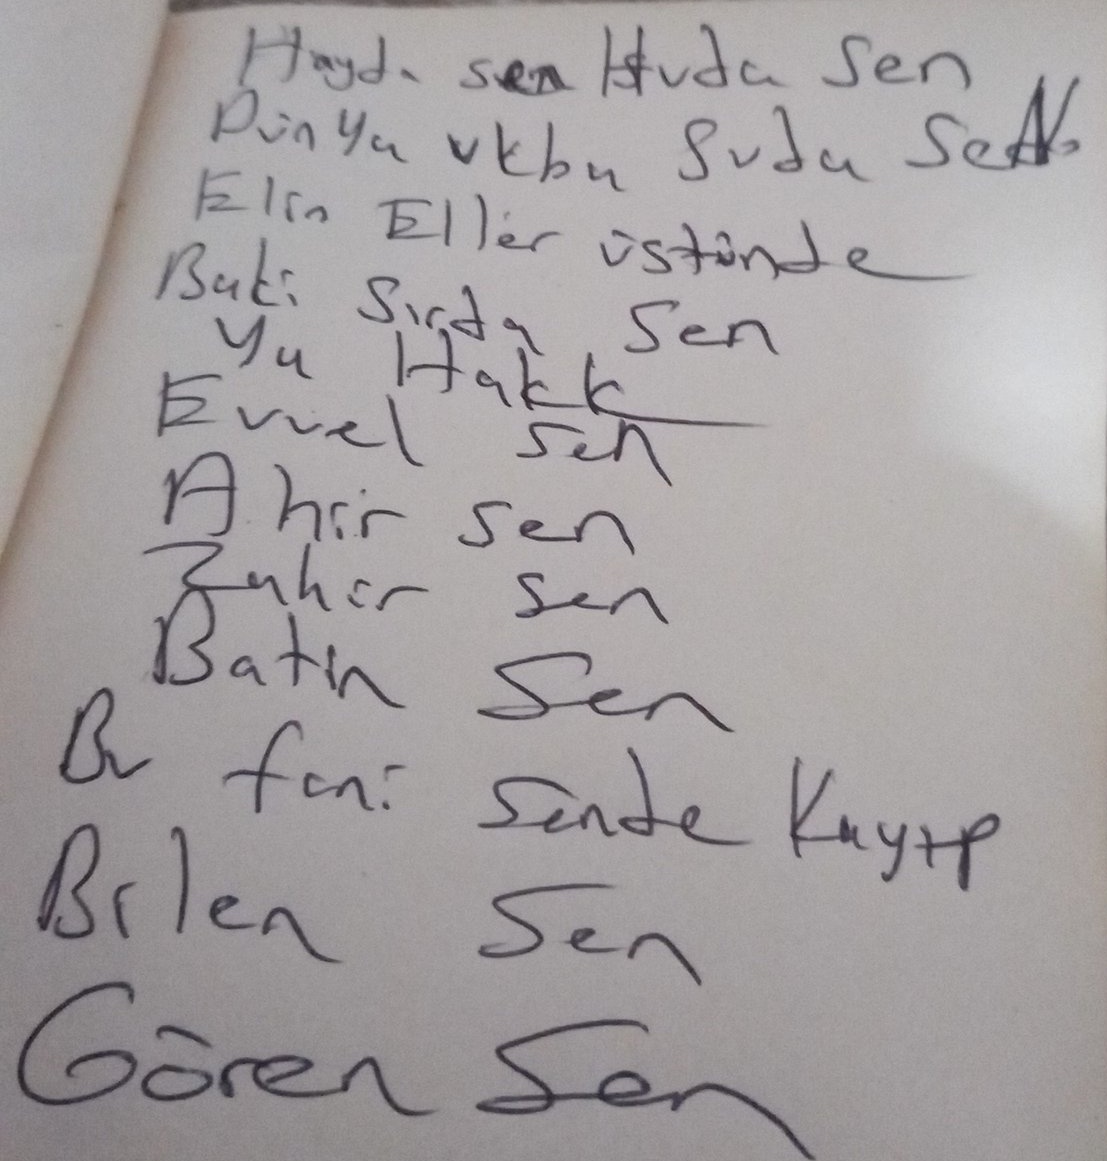 Hayda sen Huda Sen
Dünya ukba Suda Sen
Elin Eller üstünde
Baki Sırda Sen
Ya Hakk
Evvel sen
Ahir sen
Zahir sen
Batın Sen
Bu fani sende Kayıp
Bilen Sen
Gören Sen